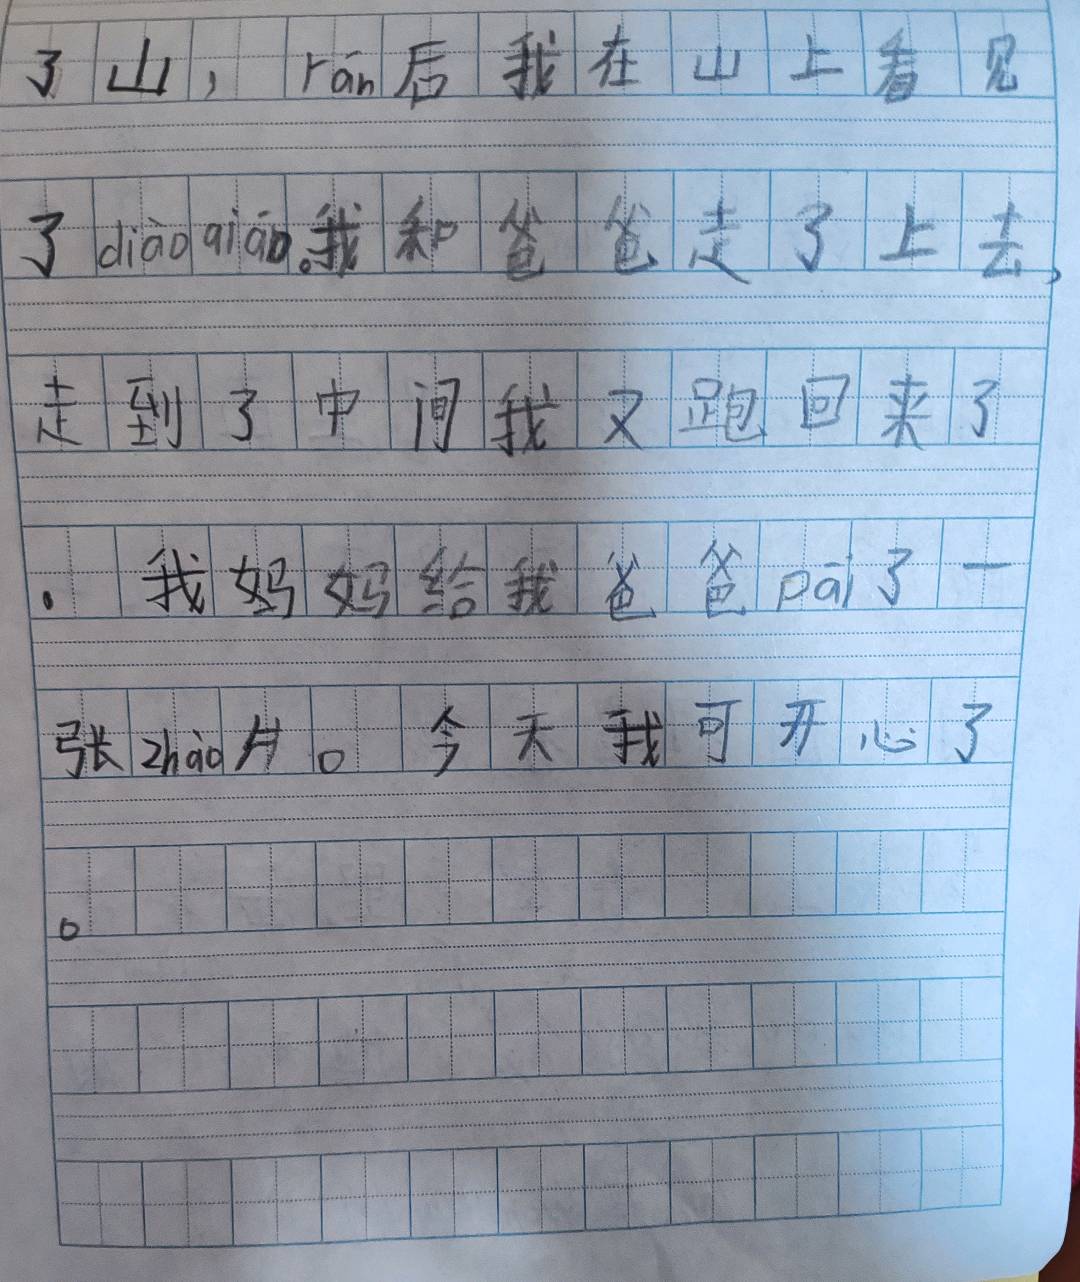 了山，rán后我在山上看见
了diàoqiáo。我和爸爸走了上去，
走到了中间我又跑回来了
。我妈妈给我爸爸pāi了一
张zhào片。今天我可开心了
。